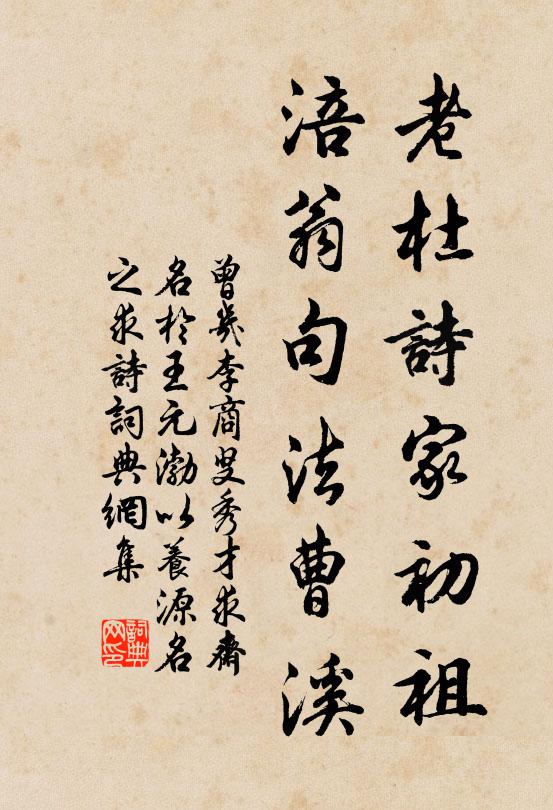 老杜詩家初祖
涪翁句法曹溪
曾幾李商叟秀才求齋
名於王元渤以養源名
之求詩詞典網集
詞典網印